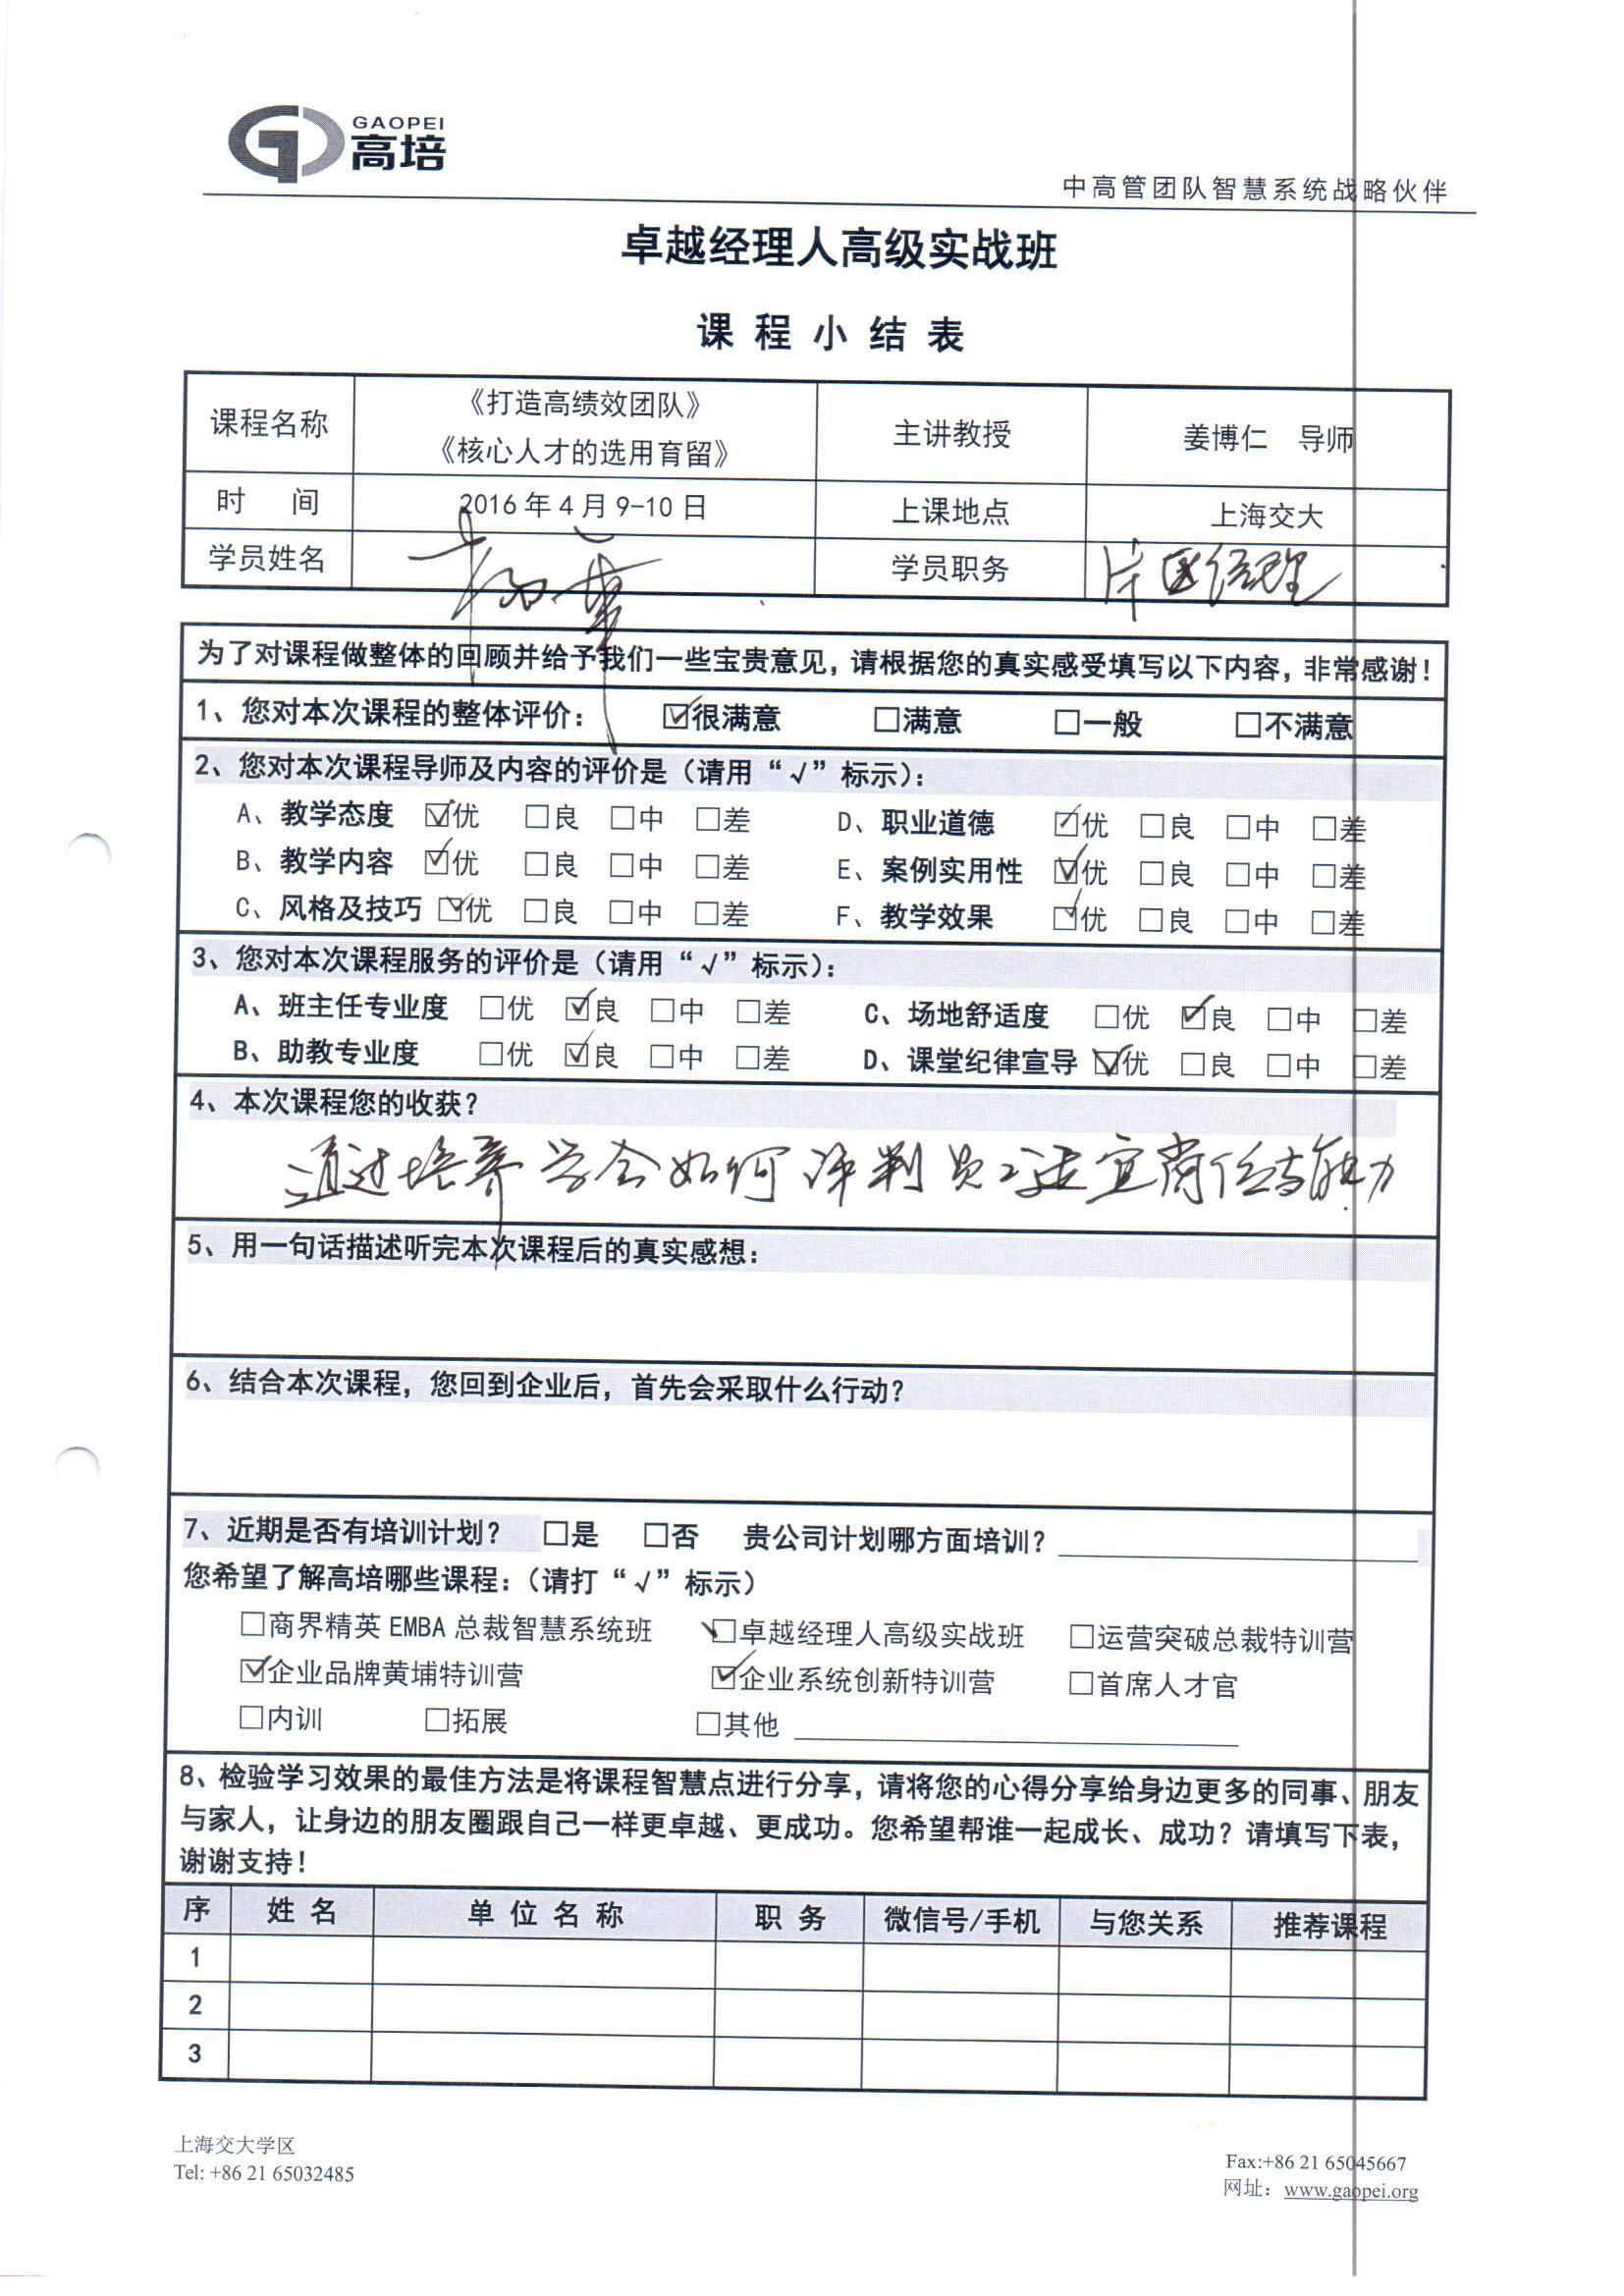 GAOPEI
高培
中高管团队智慧系统战略伙伴
卓越经理人高级实战班
课 程 小 结 表
课程名称 《打造高绩效团队》 《核心人才的选用育留》 主讲教授 姜博仁 导师
时 间 2016年4月9-10日 上课地点 上海交大
学员姓名 学员职务 片区经理
为了对课程做整体的回顾并给予我们一些宝贵意见，请根据您的真实感受填写以下内容，非常感谢！
1、您对本次课程的整体评价： ☑很满意 □满意 □一般 □不满意
2、您对本次课程导师及内容的评价是（请用“√”标示）：
A、教学态度 ☑优 □良 □中 □差 D、职业道德 ☑优 □良 □中 □差
B、教学内容 ☑优 □良 □中 □差 E、案例实用性 ☑优 □良 □中 □差
C、风格及技巧 ☑优 □良 □中 □差 F、教学效果 ☑优 □良 □中 □差
3、您对本次课程服务的评价是（请用“√”标示）：
A、班主任专业度 □优 ☑良 □中 □差 C、场地舒适度 □优 ☑良 □中 □差
B、助教专业度 □优 ☑良 □中 □差 D、课堂纪律宣导 ☑优 □良 □中 □差
4、本次课程您的收获？
通过培养学会如何评判员工适宜岗位与能力
5、用一句话描述听完本次课程后的真实感想：
6、结合本次课程，您回到企业后，首先会采取什么行动？
7、近期是否有培训计划？ □是 □否 贵公司计划哪方面培训？
您希望了解高培哪些课程：（请打“√”标示）
□商界精英EMBA总裁智慧系统班 ☑卓越经理人高级实战班 □运营突破总裁特训营
☑企业品牌黄埔特训营 ☑企业系统创新特训营 □首席人才官
□内训 □拓展 □其他
8、检验学习效果的最佳方法是将课程智慧点进行分享，请将您的心得分享给身边更多的同事、朋友
与家人，让身边的朋友圈跟自己一样更卓越、更成功。您希望帮谁一起成长、成功？请填写下表，
谢谢支持！
序 姓 名 单 位 名 称 职 务 微信号/手机 与您关系 推荐课程
1
2
3
上海交大学区
Tel: +86 21 65032485
Fax:+86 21 65045667
网址：www.gaopei.org